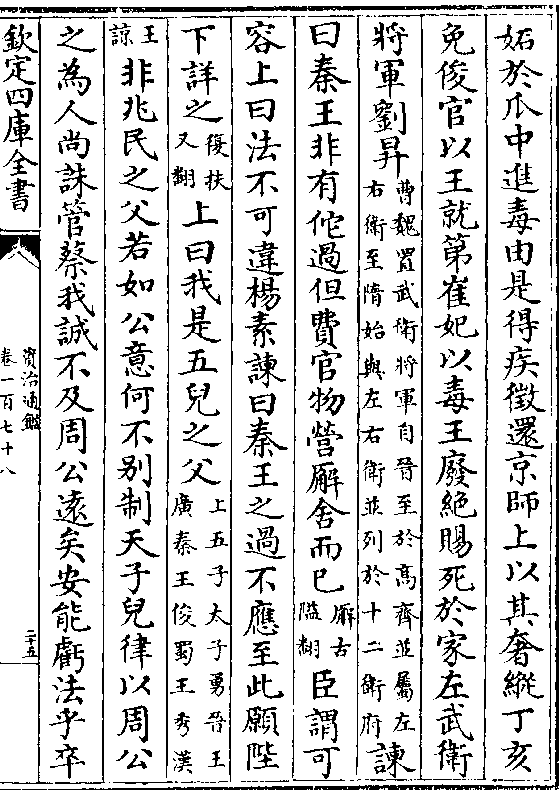 妬於瓜中進毒由是得疾徵還京師上以其奢縱丁亥
免俊官以王就第崔妃以毒王廢絶賜死於家左武衛
將軍劉昇曹魏置武衛將軍自晉至於髙齊並屬左右衛至隋始與左右衛並列於十二衛府諫
曰秦王非有佗過但費官物營廨舍而已廨古隘翻臣謂可
容上曰法不可違楊素諫曰秦王之過不應至此願陛
下詳之復扶又翻上曰我是五兒之父上五子太子勇晉王廣秦王俊蜀王秀漢
王諒非兆民之父若如公意何不别制天子兒律以周公
之為人尚誅管蔡我誠不及周公遠矣安能虧法乎卒
欽定四庫全書
資治通鑑
卷一百七十八
二十五